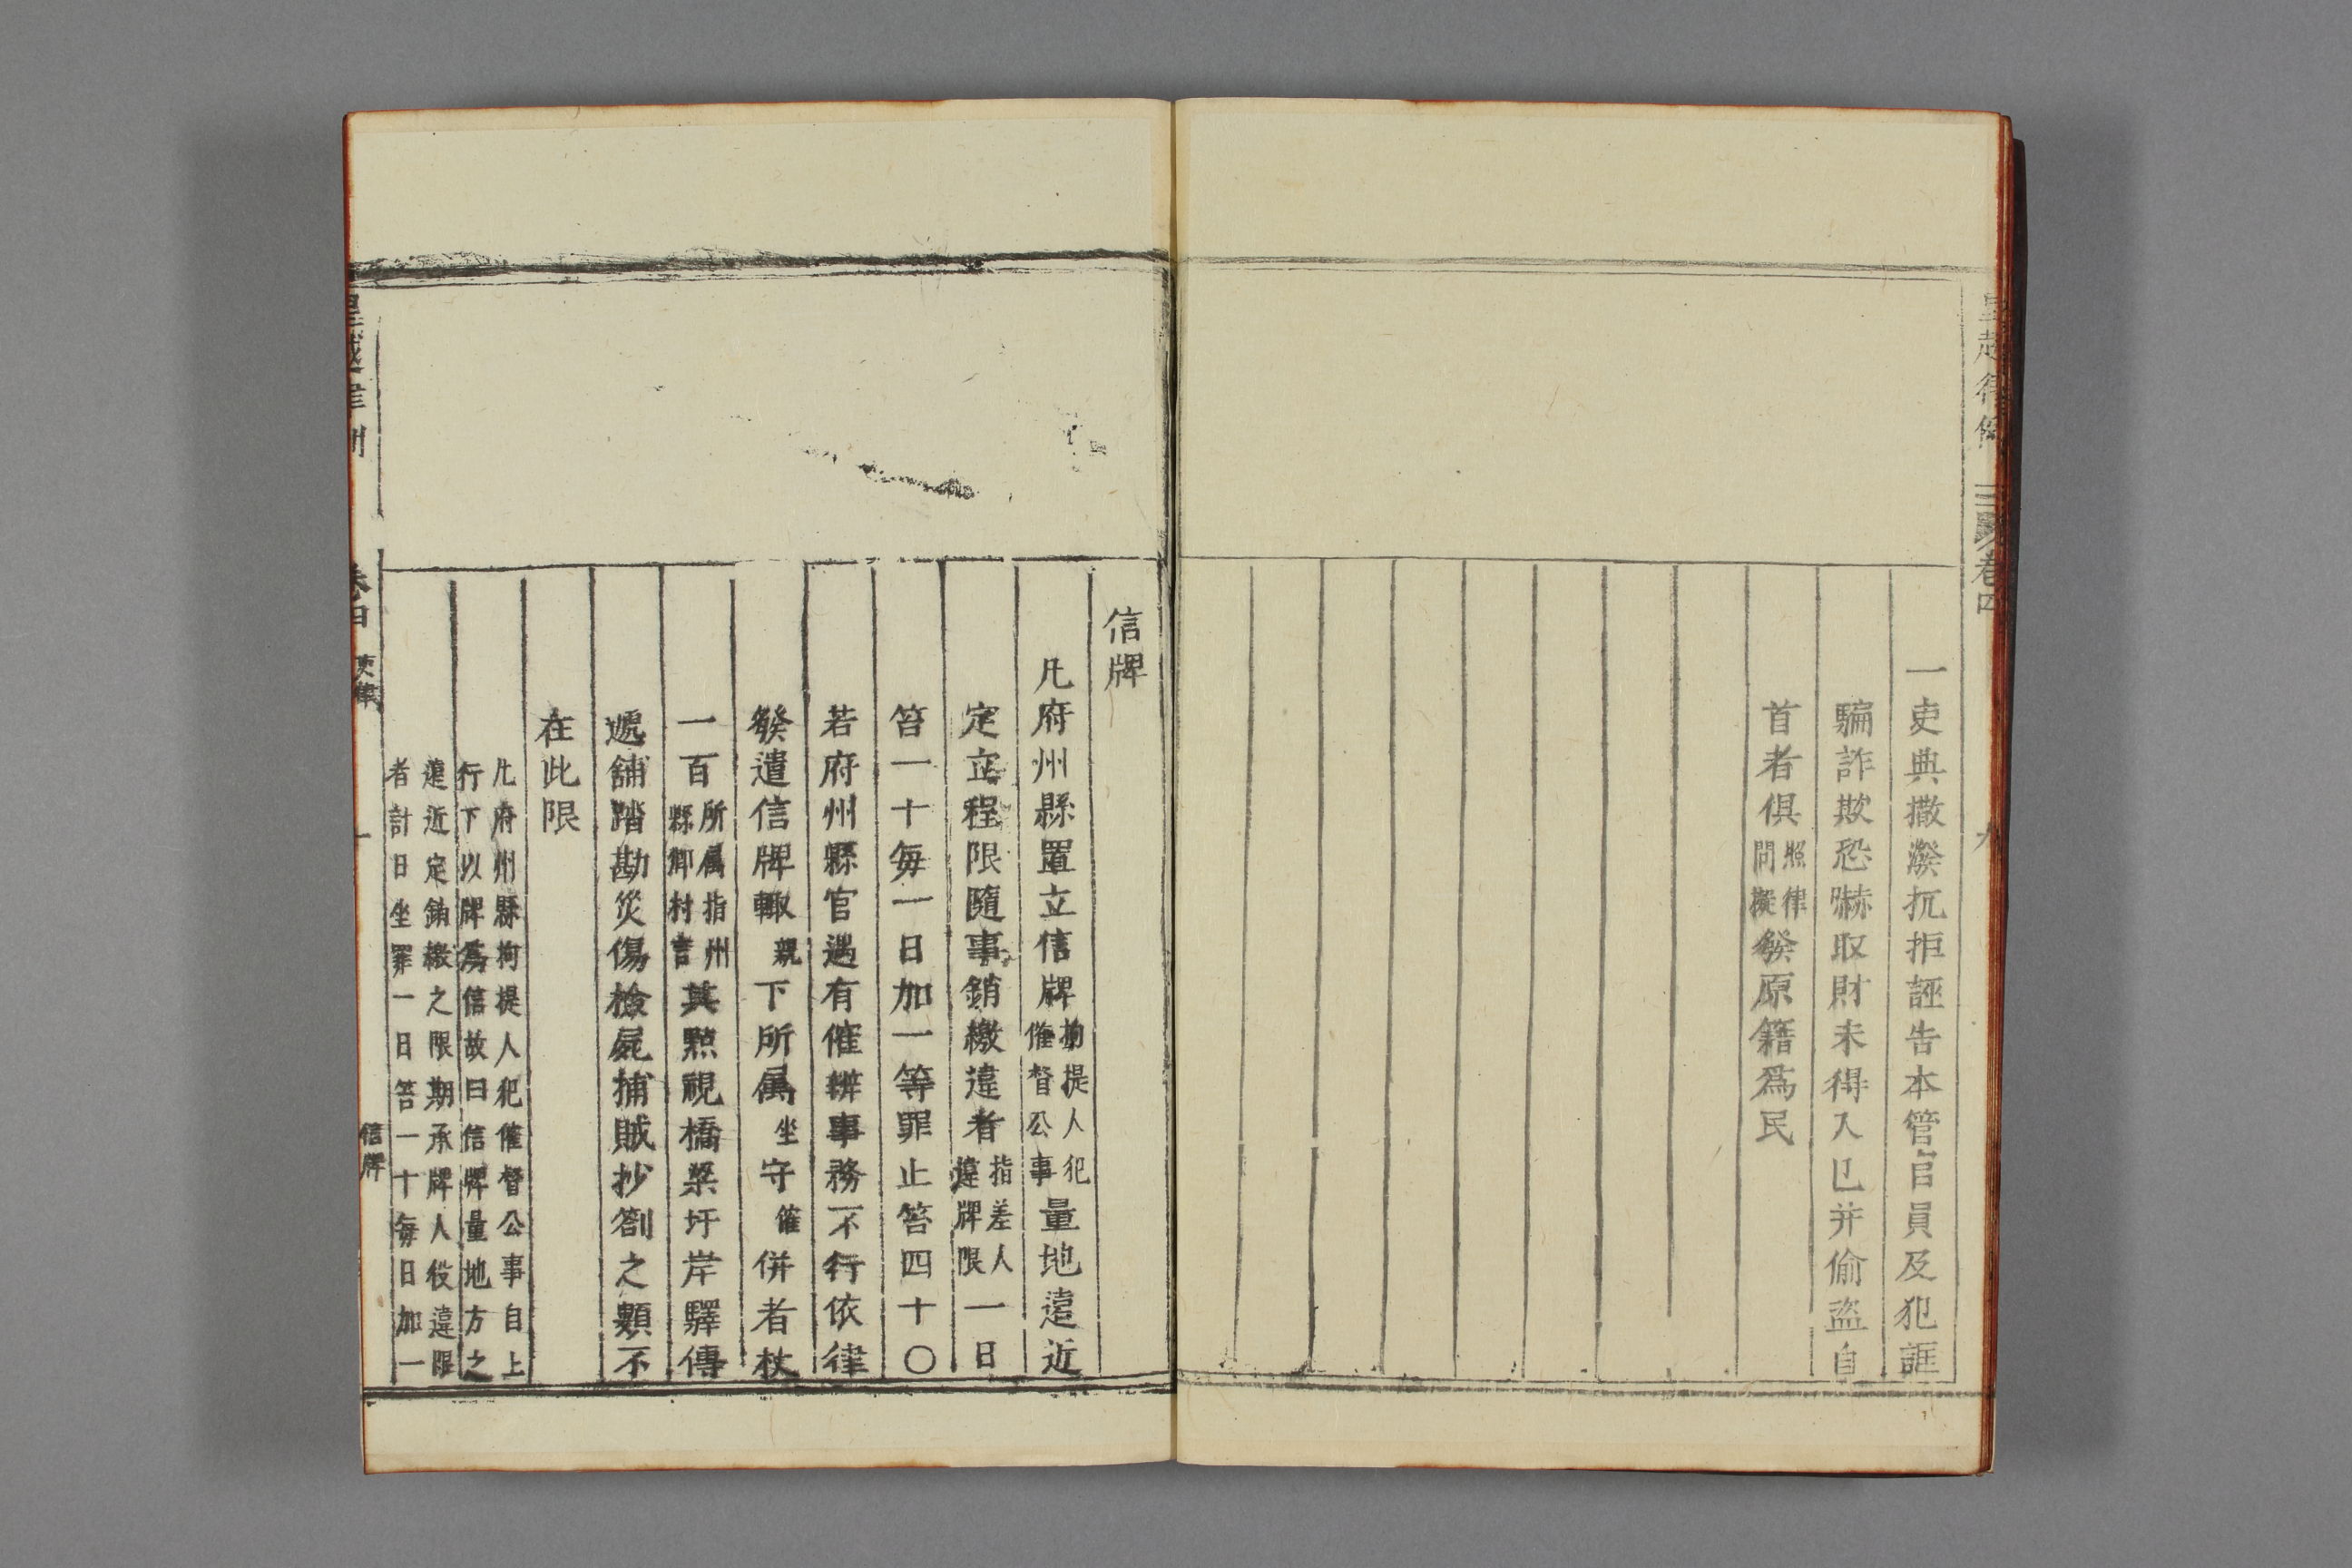 一吏典撒潑抗拒誣告本管官員及犯誆
騙詐欺恐嚇取財未得入已并偷盜自
首者俱照律問擬發原籍爲民
信牌
凡府州縣置立信牌拘提人犯催督公事量地遠近
定立程限隨事銷繳違者指差人違牌限一日
笞一十每一日加一等罪止笞四十〇
若府州縣官遇有催辦事務不行依律
發遣信牌輙親下所属坐守催併者杖
一百所属指州縣鄉村言其㸃視橋梁圩岸驛傳
遞舖踏勘災傷檢屍捕賊抄劄之類不
在此限
凡府州縣拘提人犯催督公事自上
行下以牌爲信故曰信牌量地方之
遠近定銷繳之限期承牌人役違限
者計日坐罪一日笞一十每日加一
卷四
吏律
信牌